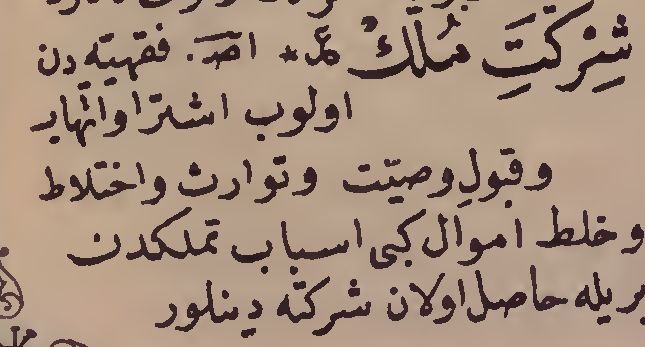 شِرْكَتِ مُلْكْ * اصـ. فقهيه دن
اولوب اشترا واتهاب
وقبولِ وصيّت وتوارث واختلاط
وخلط اموال كبى اسباب تملكدن
بريله حاصل اولان شركته دينلور